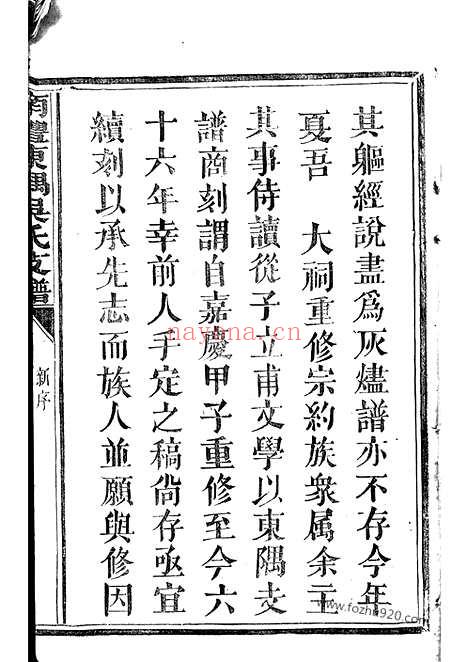 其軀經說盡為灰燼譜亦不存今年
夏吾 大祠重修宗約族衆属余主
其事侍讀從子立甫文學以東隅支
譜商刻謂自嘉慶甲子重修至今六
十六年幸前人手定之稿尙存亟宜
續刻以承先志而族人並願與修因
南豐東隅吳氏支譜
新序
nayona.cn
www.fozhu920.com